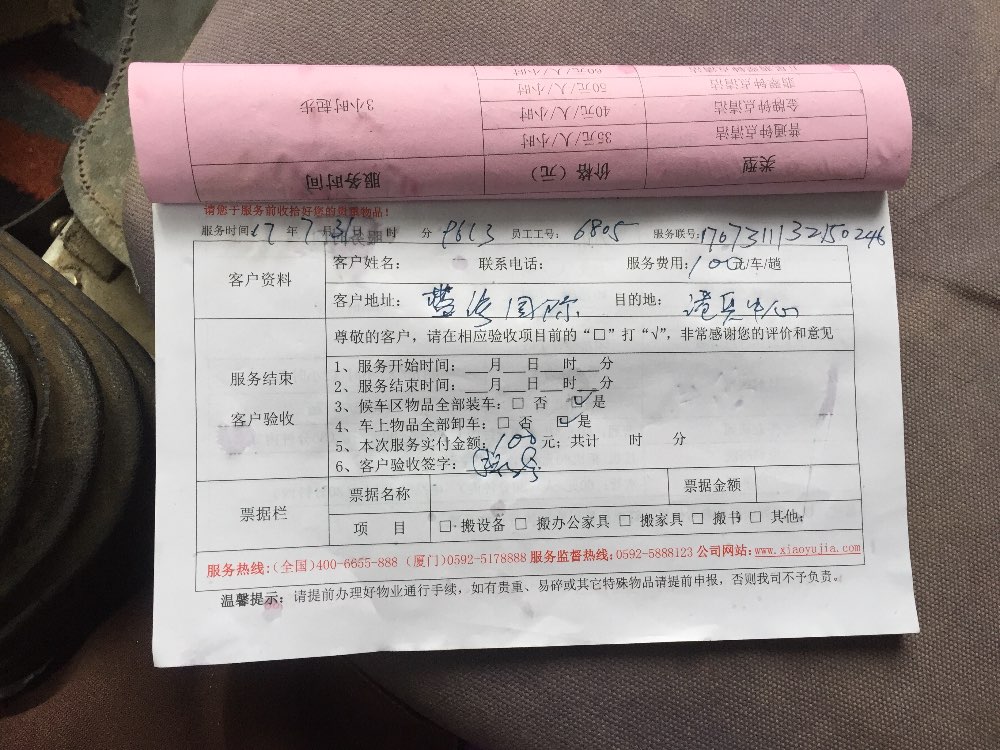 类型 价格（元） 服务时间
普通钟点清洁 35元/人/小时 3小时起步
金牌钟点清洁 40元/人/小时
翡翠钟点清洁 50元/人/小时
60元/人/小时
请您于服务前收拾好您的贵重物品！
服务时间17年7月31日 时 分 9613 员工工号：6805 服务联号：1707311132150246
客户资料 客户姓名： 联系电话： 服务费用：100元/车/趟
客户地址： 国际 目的地： 中心
尊敬的客户，请在相应验收项目前的“□”打“√”，非常感谢您的评价和意见
服务结束
客户验收
1、服务开始时间：___月___日___时___分
2、服务结束时间：___月___日___时___分
3、候车区物品全部装车：□ 否 ☑ 是
4、车上物品全部卸车：□ 否 ☑ 是
5、本次服务实付金额：100元；共计 时 分
6、客户验收签字：
票据栏 票据名称 票据金额
项 目 □ 搬设备 □ 搬办公家具 □ 搬家具 □ 搬书 □ 其他：
服务热线：(全国)400-6655-888 (厦门)0592-5178888 服务监督热线：0592-5888123 公司网站：www.xiaoyujia.com
温馨提示：请提前办理好物业通行手续，如有贵重、易碎或其它特殊物品请提前申报，否则我司不予负责。